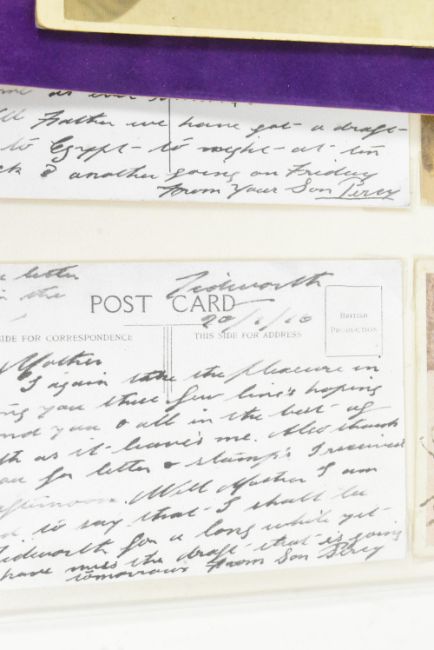 as ever
Father we have got a draft
to Egypt to night at ten
& another going on Friday
From Your Son Percy
letter
in the
Tidworth
POST CARD
BRITISH
PRODUCTION
SIDE FOR CORRESPONDENCE
THIS SIDE FOR ADDRESS
Mother
I again take the pleasure in
you these few line's hoping
you & all in the best of
as it leave's me. Also thank
for letter & stamp's I received
afternoon. Well Mother I am
to say that I shall be
Tidworth for a long while yet
have miss the draft that is going
tomorrow From Son Percy